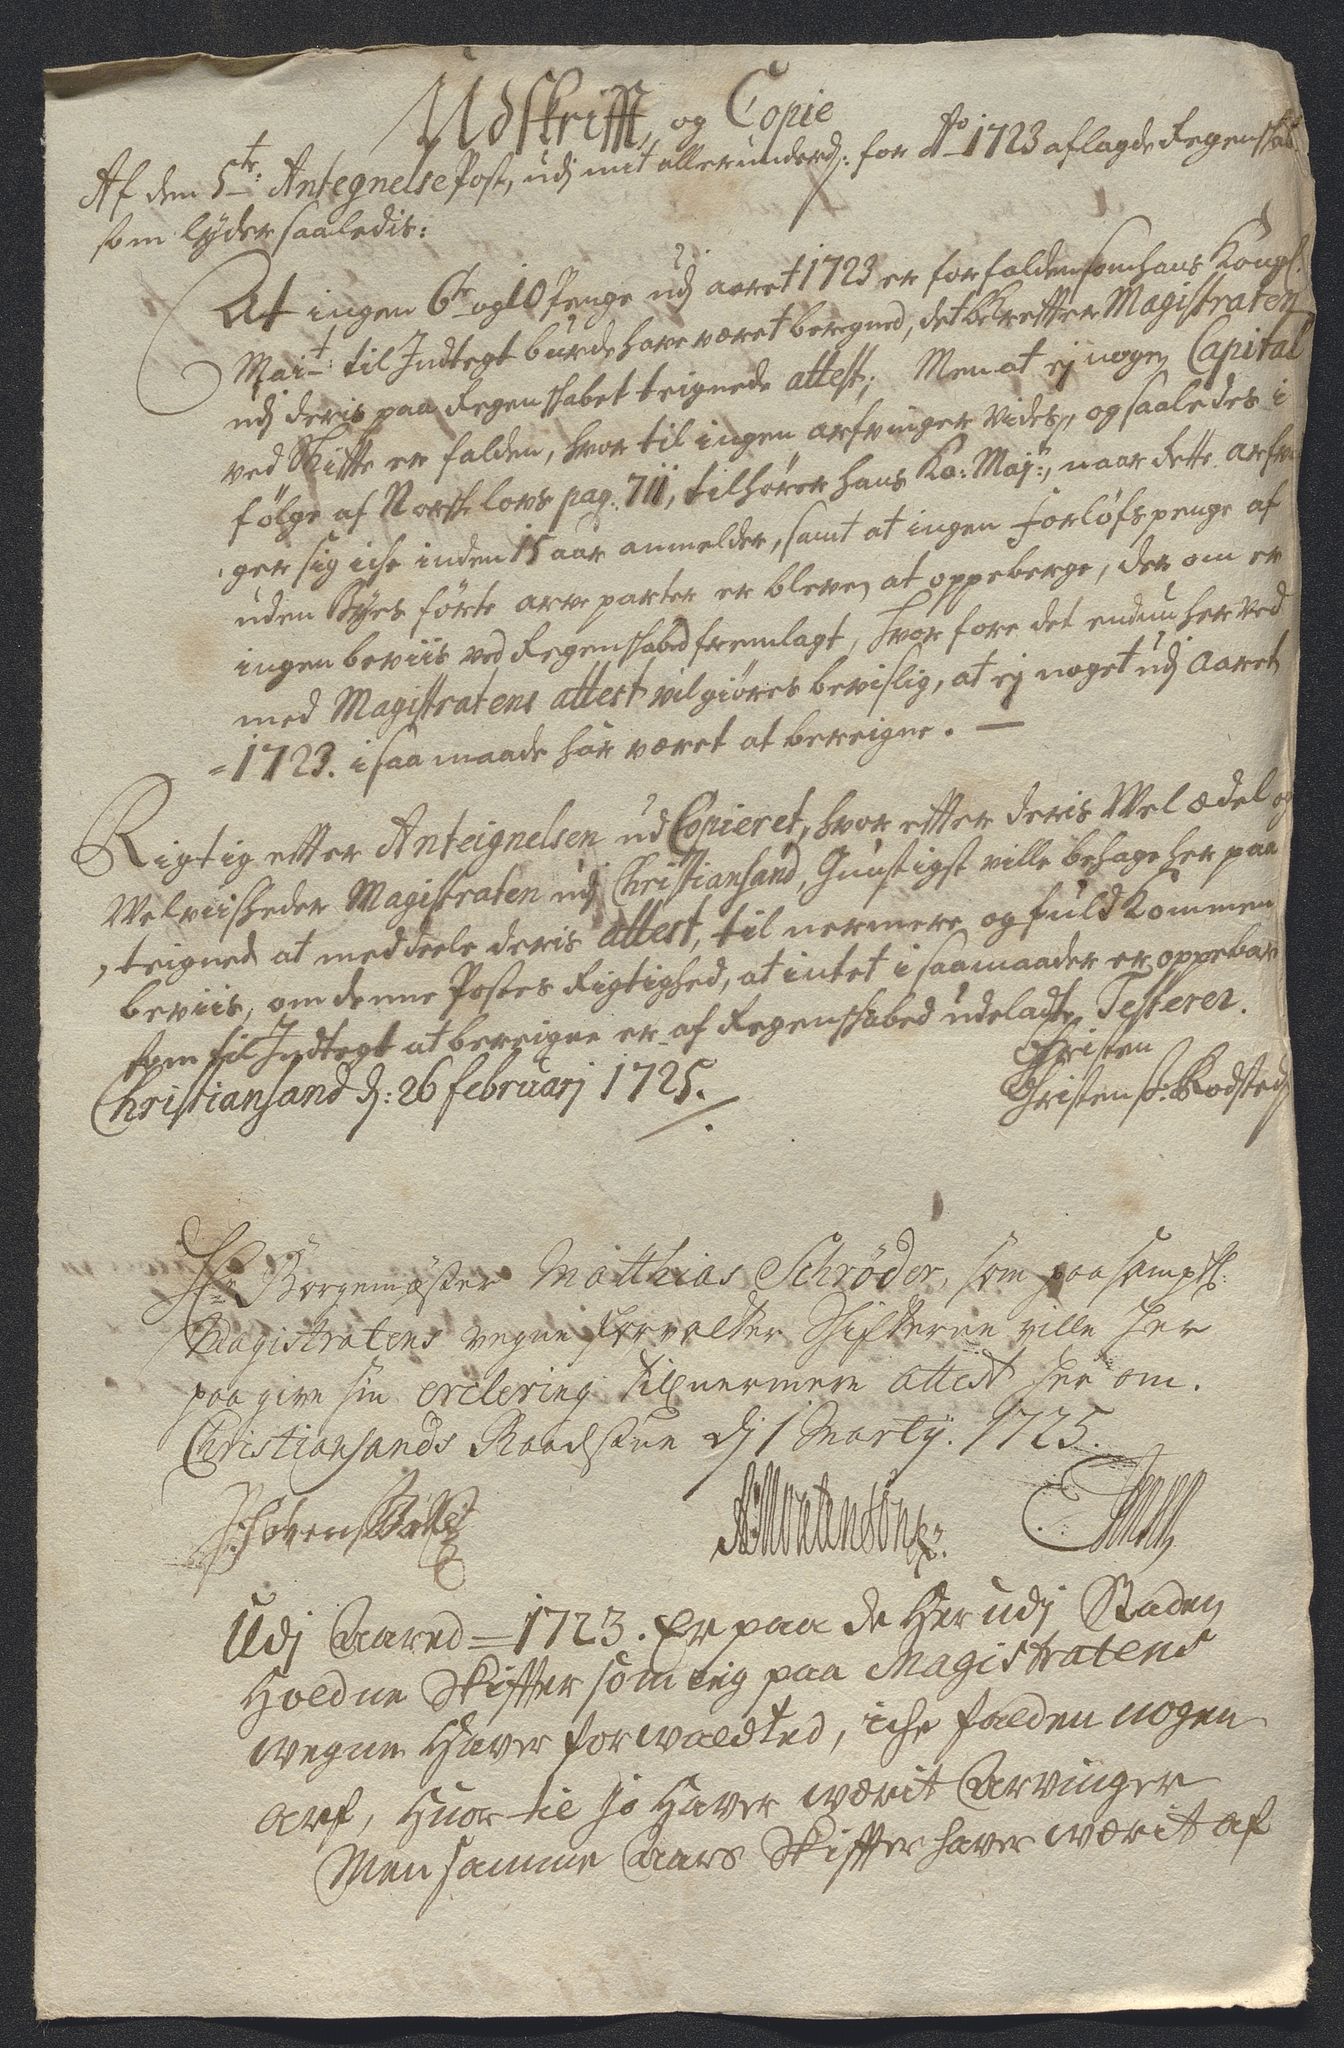 Udskrifft, og Copie
Af den 5te: Antegnelse Post, udj mit allerunderd: for Ao 1723 aflagde Regenskab
som lyder saaledis:
At ingen 6te og 10 Penge udj aaret 1723 er forfalden som hans Kongl.
Mait: til Indtegt burde have været beregned, det bekreffter Magistraten
udj deris paa Regenskabet teignede attest; Men at ej nogen Capital
ved Skiffte er falden, hvor til ingen arfvinger vides, og saaledes i
følge af Norske lovs pag: 711, tilhører hans Ko: Maj:, naar dette arfvin
ger sig iche inden 15 aar anmelder, samt at ingen forlofs penge af
uden Byes førte arve parter er bleven at oppeberge, der om er
ingen beviis ved Regenskabed fremlagt, hvor fore det endnu her ved
med Magistratens attest vil giøres bevislig, at ej noget udj Aaret
1723. i saa maade har været at bereigne. —
Rigtig etter Anteignelsen ud Copieret, hvor etter deris Wel ædel og
Welviisheder Magistraten udj Christiansand, Gunstigst ville behage her paa
teigned at meddeele deris attest, til nermere og fuldkommen
beviis, om denne Postes Rigtighed, at intet i saa maader er oppebar
som til Indtegt at bereigne er af Regenskabed udeladt, Testerer.
Christiansand d: 26 februarj 1725.
Christen
Christen S: Rodsted
Hr Borgemester Matthias Schrøder, som paa samptl:
Magistratens vegne forvalter Skifterne ville her
paa give sin erclering til nermere attest her om.
Christiansands Raadstue dj 1 Martij. 1725.
Udj Aared = 1723. Er paa de Her udj Staden
Holdne Skiffter som ieg paa Magistratens
wegne Haver forwaldted, iche falden nogen
arf, Huor til jo Haver wærit Arvinger
Men samme Aars Skiffter haver wærit af